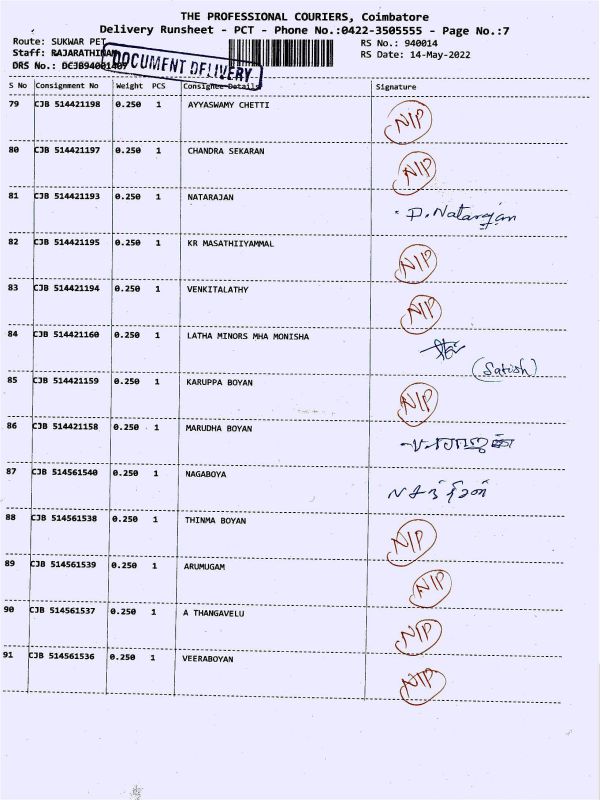 THE PROFESSIONAL COURIERS, Coimbatore
Delivery Runsheet - PCT - Phone No.:0422-3505555 - Page No.:7
Route: SUKWAR PET
RS No.: 940014
Staff: RAJARATHINAM
RS Date: 14-May-2022
DRS No.: DCJB94001407
DOCUMENT DELIVERY
S No Consignment No Weight PCS Consignee Details Signature
79 CJB 514421198 0.250 1 AYYASWAMY CHETTI N/P
80 CJB 514421197 0.250 1 CHANDRA SEKARAN N/P
81 CJB 514421193 0.250 1 NATARAJAN P. Natarajan
82 CJB 514421195 0.250 1 KR MASATHIIYAMMAL N/P
83 CJB 514421194 0.250 1 VENKITALATHY N/P
84 CJB 514421160 0.250 1 LATHA MINORS MHA MONISHA
(Satish)
85 CJB 514421159 0.250 1 KARUPPA BOYAN N/P
86 CJB 514421158 0.250 1 MARUDHA BOYAN
87 CJB 514561540 0.250 1 NAGABOYA
88 CJB 514561538 0.250 1 THINMA BOYAN N/P
89 CJB 514561539 0.250 1 ARUMUGAM N/P
90 CJB 514561537 0.250 1 A THANGAVELU N/P
91 CJB 514561536 0.250 1 VEERABOYAN N/P